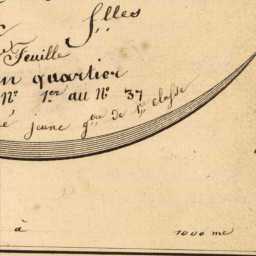 f.lles
Feuille
n quartier
N.º 1.er au N.º 37
é jeune g.re de 1.re classe
à 1000 me